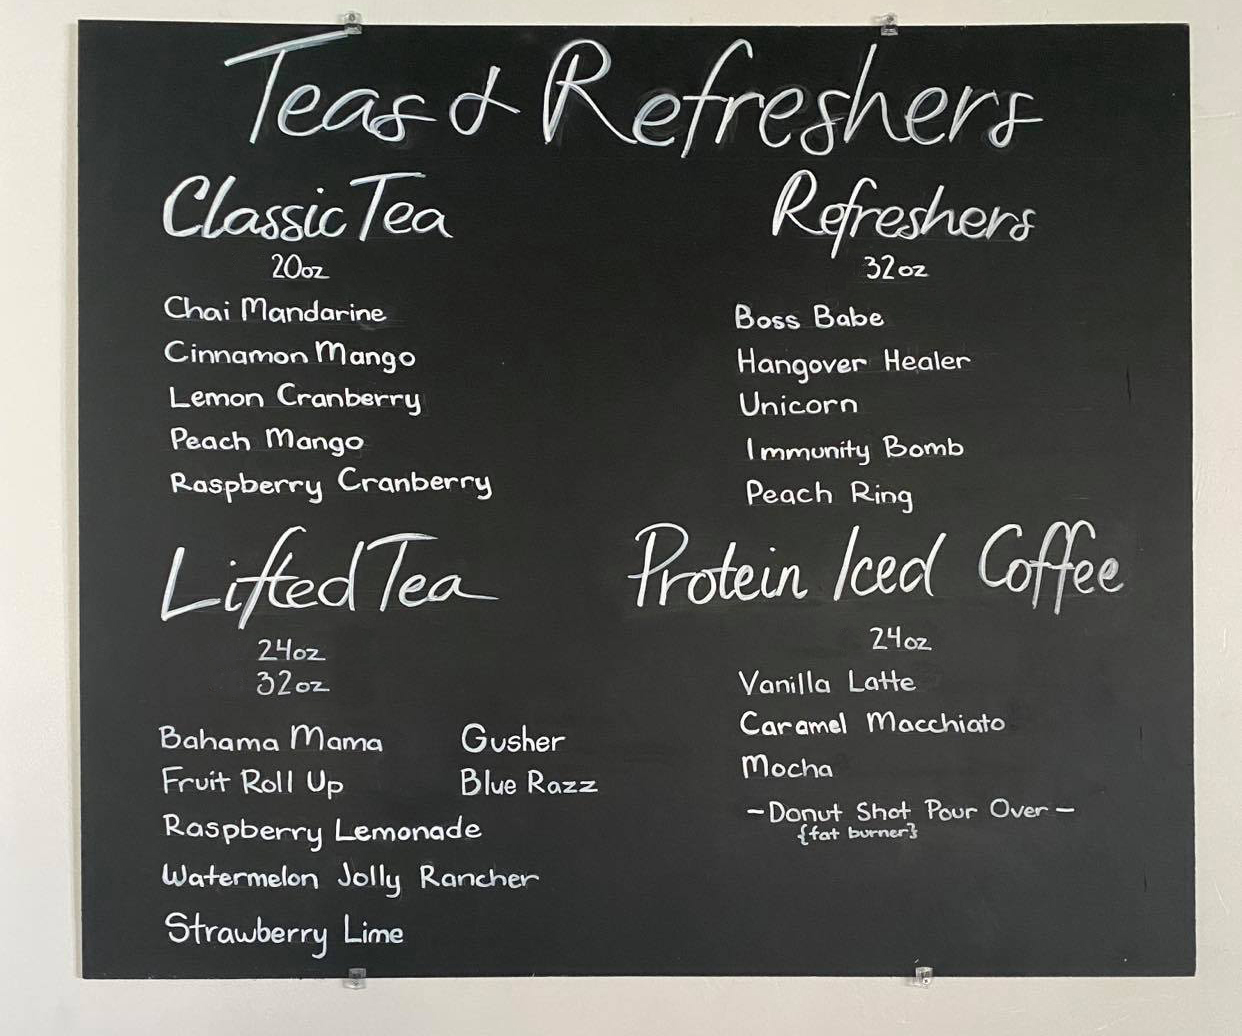 Teas & Refreshers
Classic Tea
20oz
Chai Mandarine
Cinnamon Mango
Lemon Cranberry
Peach Mango
Raspberry Cranberry
Refreshers
32oz
Boss Babe
Hangover Healer
Unicorn
Immunity Bomb
Peach Ring
Lifted Tea
24oz
32oz
Bahama Mama
Fruit Roll Up
Raspberry Lemonade
Watermelon Jolly Rancher
Strawberry Lime
Gusher
Blue Razz
Protein Iced Coffee
24oz
Vanilla Latte
Caramel Macchiato
Mocha
-Donut Shot Pour Over-
{fat burner}